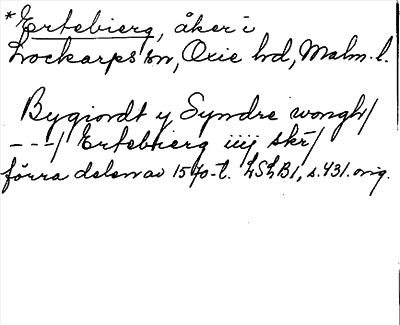 *Ertebierg, åker i
Lockarps sn, Oxie hd, Malm. l.
Bygiordt y Syndre wongh/
---/ Ertebierg iiij skr/
förra delen av 1570-t. LSLB1, s. 431. orig.